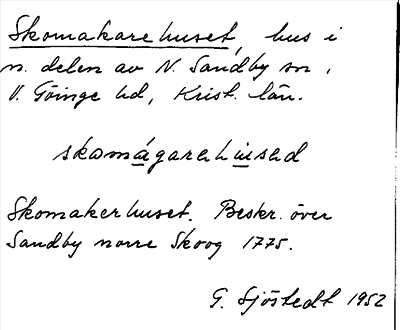 Skomakarehuset, hus i
n. delen av N. Sandby sn,
V. Göinge hd, Krist. län.
skomágarehúsed
Skomakerhuset. Beskr. över
Sandby norre Skoog 1775.
G. Sjöstedt 1952